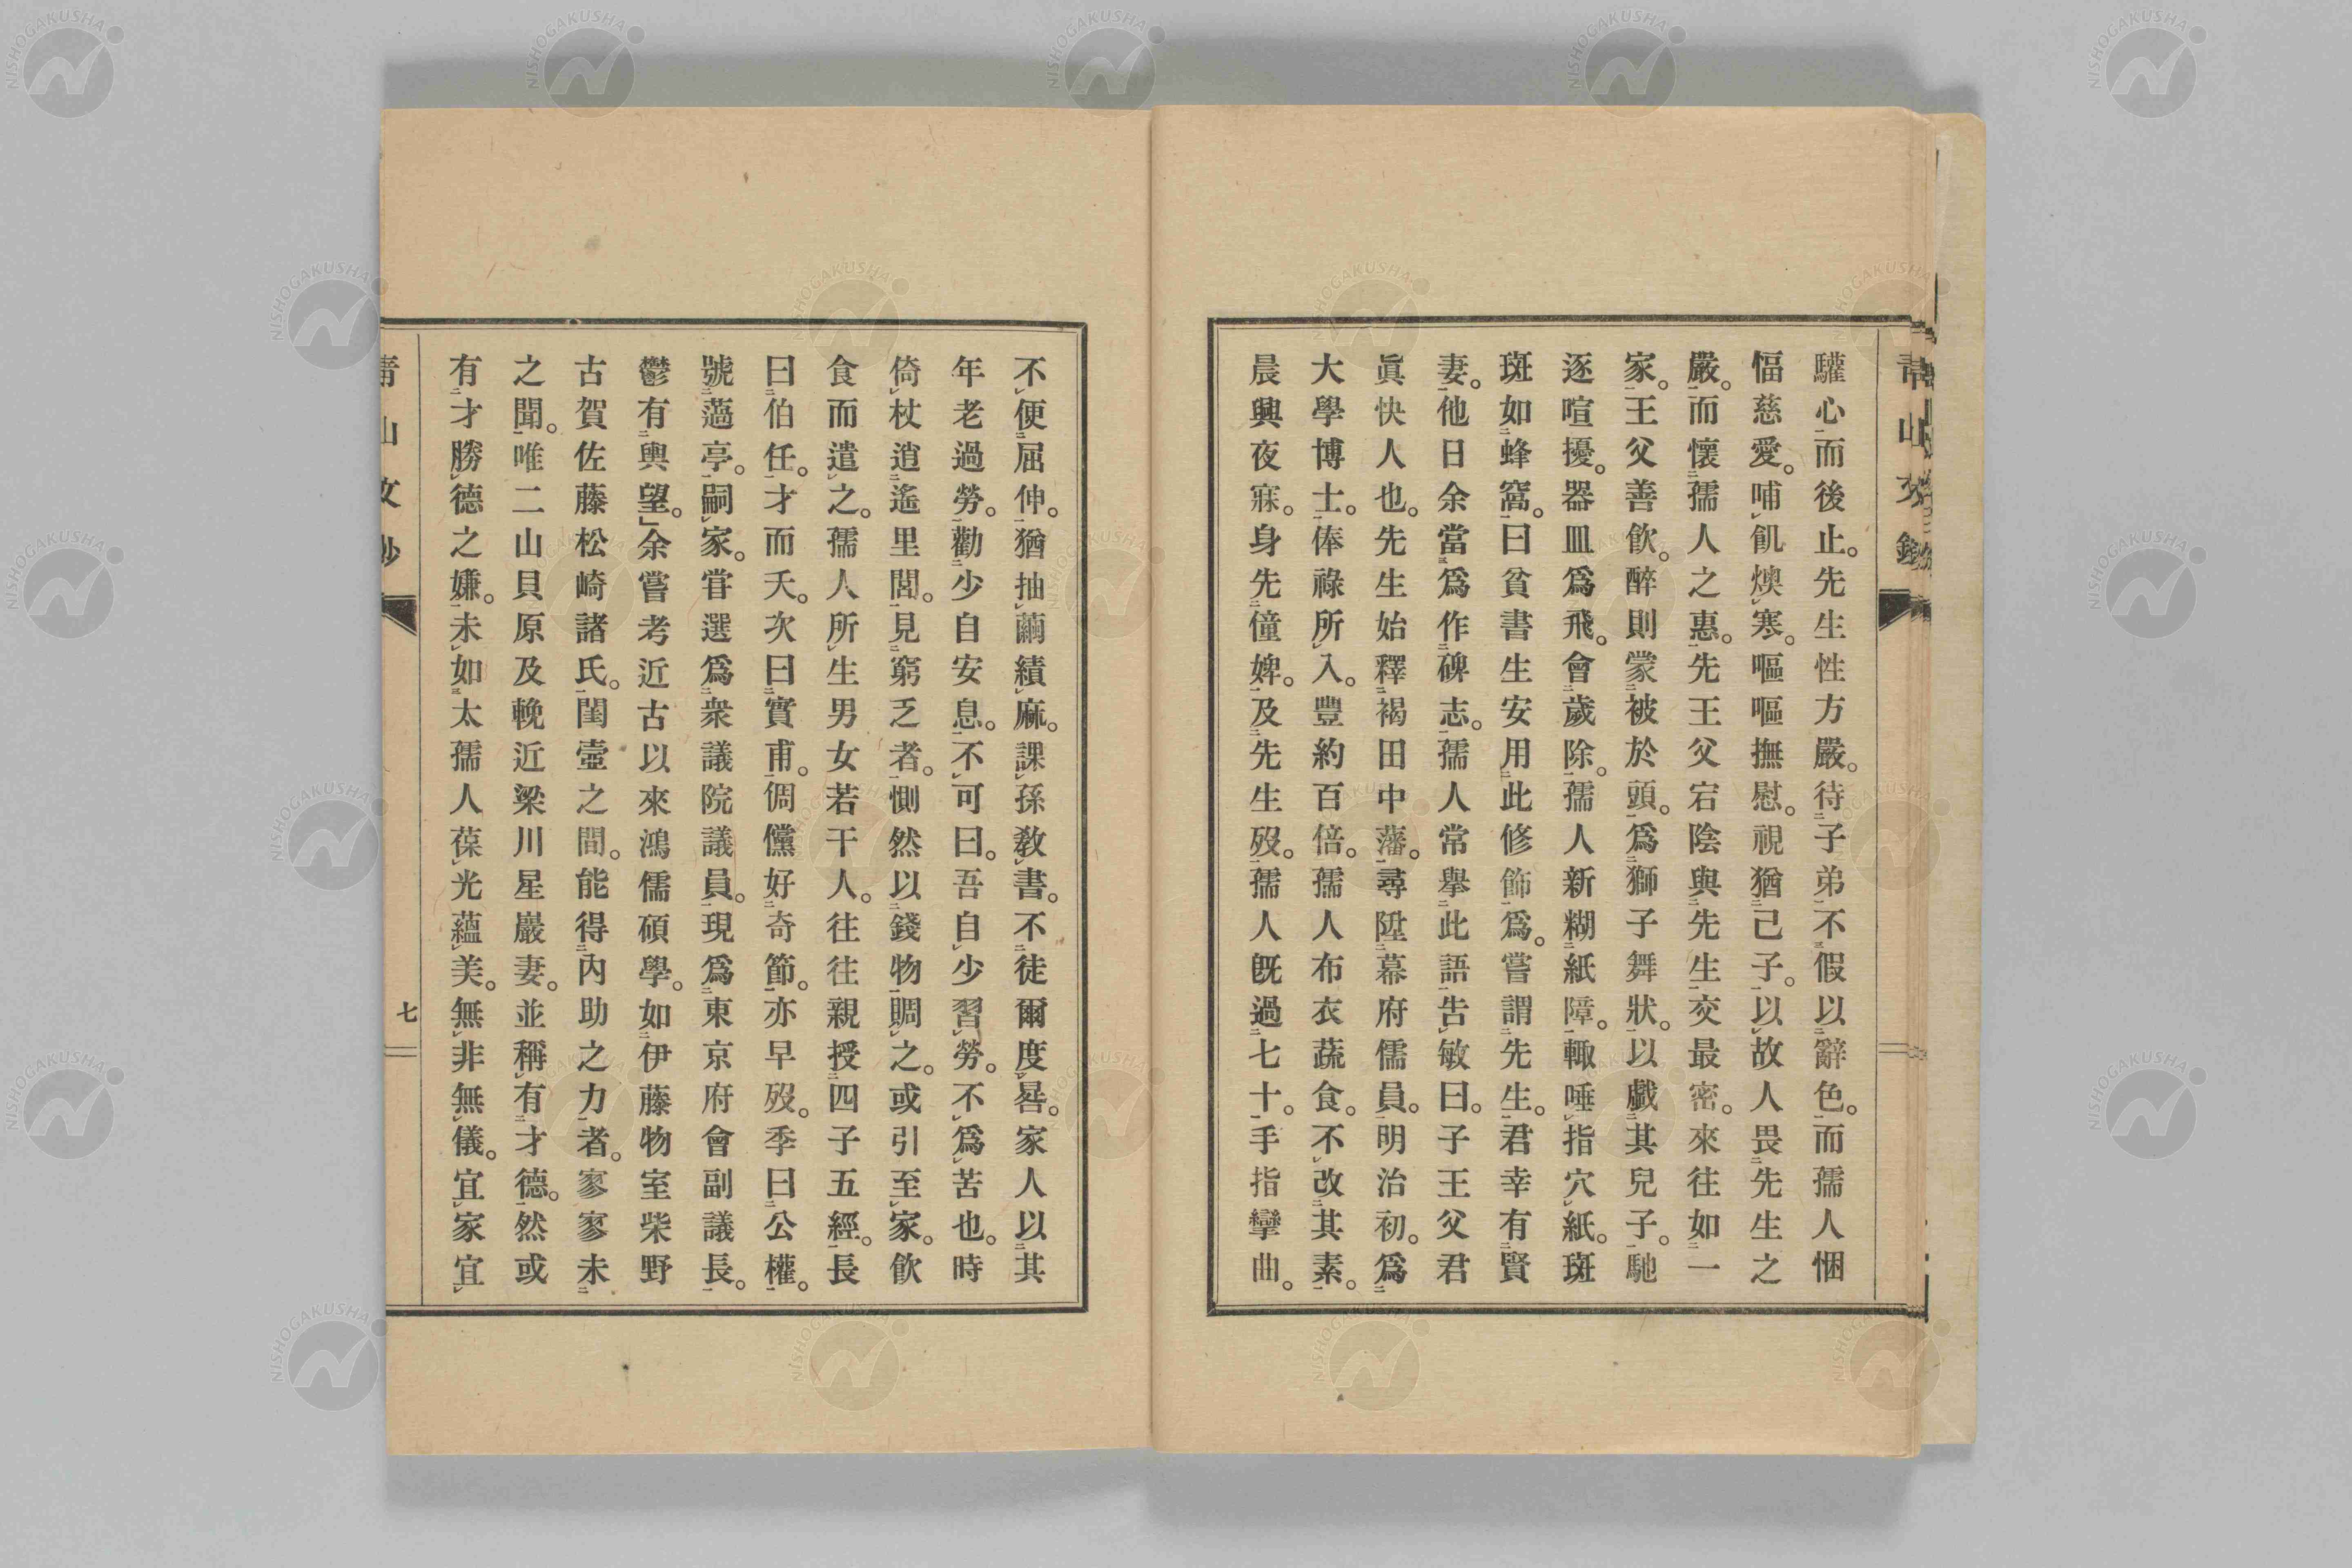 驩心而後止。先生性方嚴。待子弟不假以辭色。而孺人悃
愊慈愛。哺飢燠寒。嘔嘔撫慰。視猶己子。以故人畏先生之
嚴。而懷孺人之惠。先王父宕陰與先生交最密。來往如一
家。王父善飮。醉則蒙被於頭。爲獅子舞狀。以戲其兒子。馳
逐喧擾。器皿爲飛。會歲除。孺人新糊紙障。輙唾指穴紙。斑
斑如蜂窩。曰貧書生安用此修飾爲。嘗謂先生。君幸有賢
妻。他日余當爲作碑志。孺人常擧此語告敏曰。子王父君
眞快人也。先生始釋褐田中藩。尋陞幕府儒員。明治初。爲
大學博士。俸祿所入。豐約百倍。孺人布衣蔬食。不改其素。
晨興夜寐。身先僮婢。及先生歿。孺人旣過七十。手指攣曲。
不便屈伸。猶抽繭績麻。課孫敎書。不徒爾度晷。家人以其
年老過勞。勸少自安息。不可曰。吾自少習勞。不爲苦也。時
倚杖逍遙里閭。見窮乏者。惻然以錢物賙之。或引至家。飮
食而遣之。孺人所生男女若干人。往往親授四子五經。長
曰伯任。才而夭。次曰實甫。倜儻好奇節。亦早歿。季曰公權。
號薖亭。嗣家。甞選爲衆議院議員。現爲東京府會副議長。
鬱有輿望。余嘗考近古以來鴻儒碩學。如伊藤物室柴野
古賀佐藤松崎諸氏。閨壼之間。能得內助之力者。寥寥未
之聞。唯二山貝原及輓近梁川星巖妻。並稱有才德。然或
有才勝德之嫌。未如太孺人葆光蘊美。無非無儀。宜家宜
七
NISHOGAKUSHA